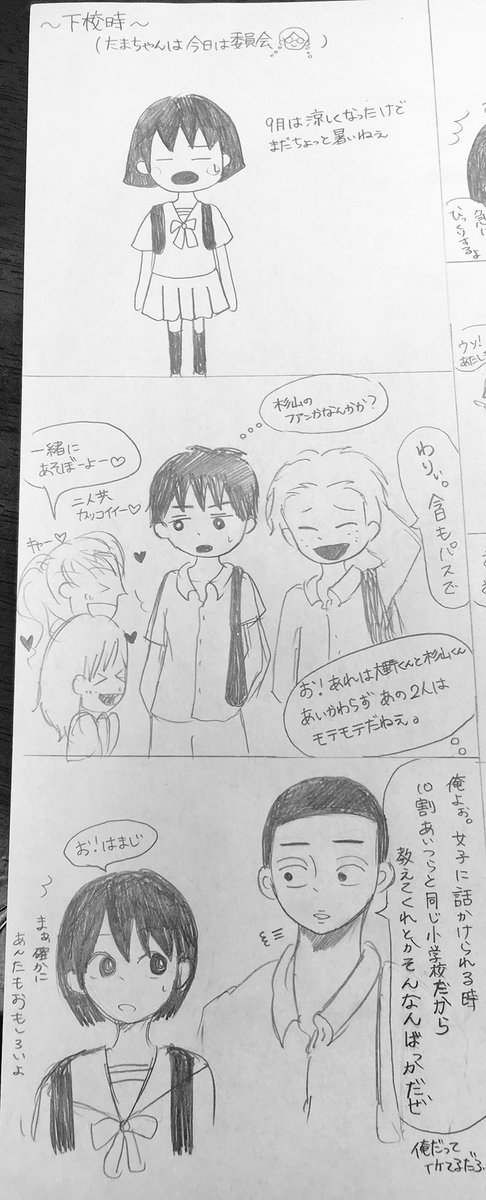 〜下校時〜
(たまちゃんは今日は委員会)
9月は涼しくなったけど
まだちょっと暑いねぇ
杉山の
ファンかなんかか?
一緒に
あそぼーよー♡
二人共
カッコイイー♡
キャー♡
わりぃ。今日もパスで
お!あれは大野くんと杉山くん
あいかわらずあの2人は
モテモテだねぇ。
俺よぉ。女子に話かけられる時
10割あいつらと同じ小学校だから
教えてくれとかそんなんばっかだぜ
お!はまじ
まぁ確かに
あんたもおもしろいよ
俺だって
イケてるだろ
急に
びっくりするよ
ウソ!
あたし